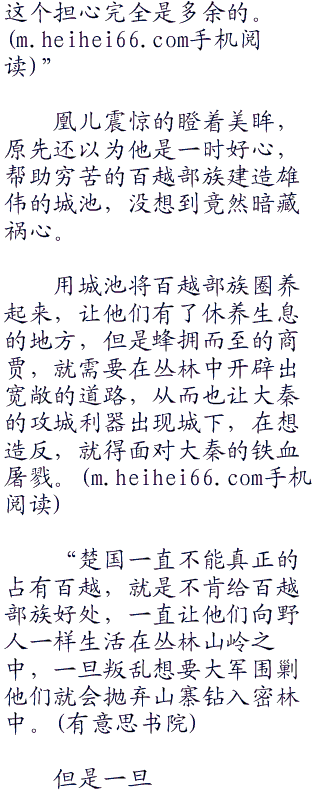 这个担心完全是多余的。
(m.heihei66.com手机阅
读)”
凰儿震惊的瞪着美眸，
原先还以为他是一时好心，
帮助穷苦的百越部族建造雄
伟的城池，没想到竟然暗藏
祸心。
用城池将百越部族圈养
起来，让他们有了休养生息
的地方，但是蜂拥而至的商
贾，就需要在丛林中开辟出
宽敞的道路，从而也让大秦
的攻城利器出现城下，在想
造反，就得面对大秦的铁血
屠戮。(m.heihei66.com手机
阅读)
“楚国一直不能真正的
占有百越，就是不肯给百越
部族好处，一直让他们向野
人一样生活在丛林山岭之
中，一旦叛乱想要大军围剿
他们就会抛弃山寨钻入密林
中。(有意思书院)
但是一旦